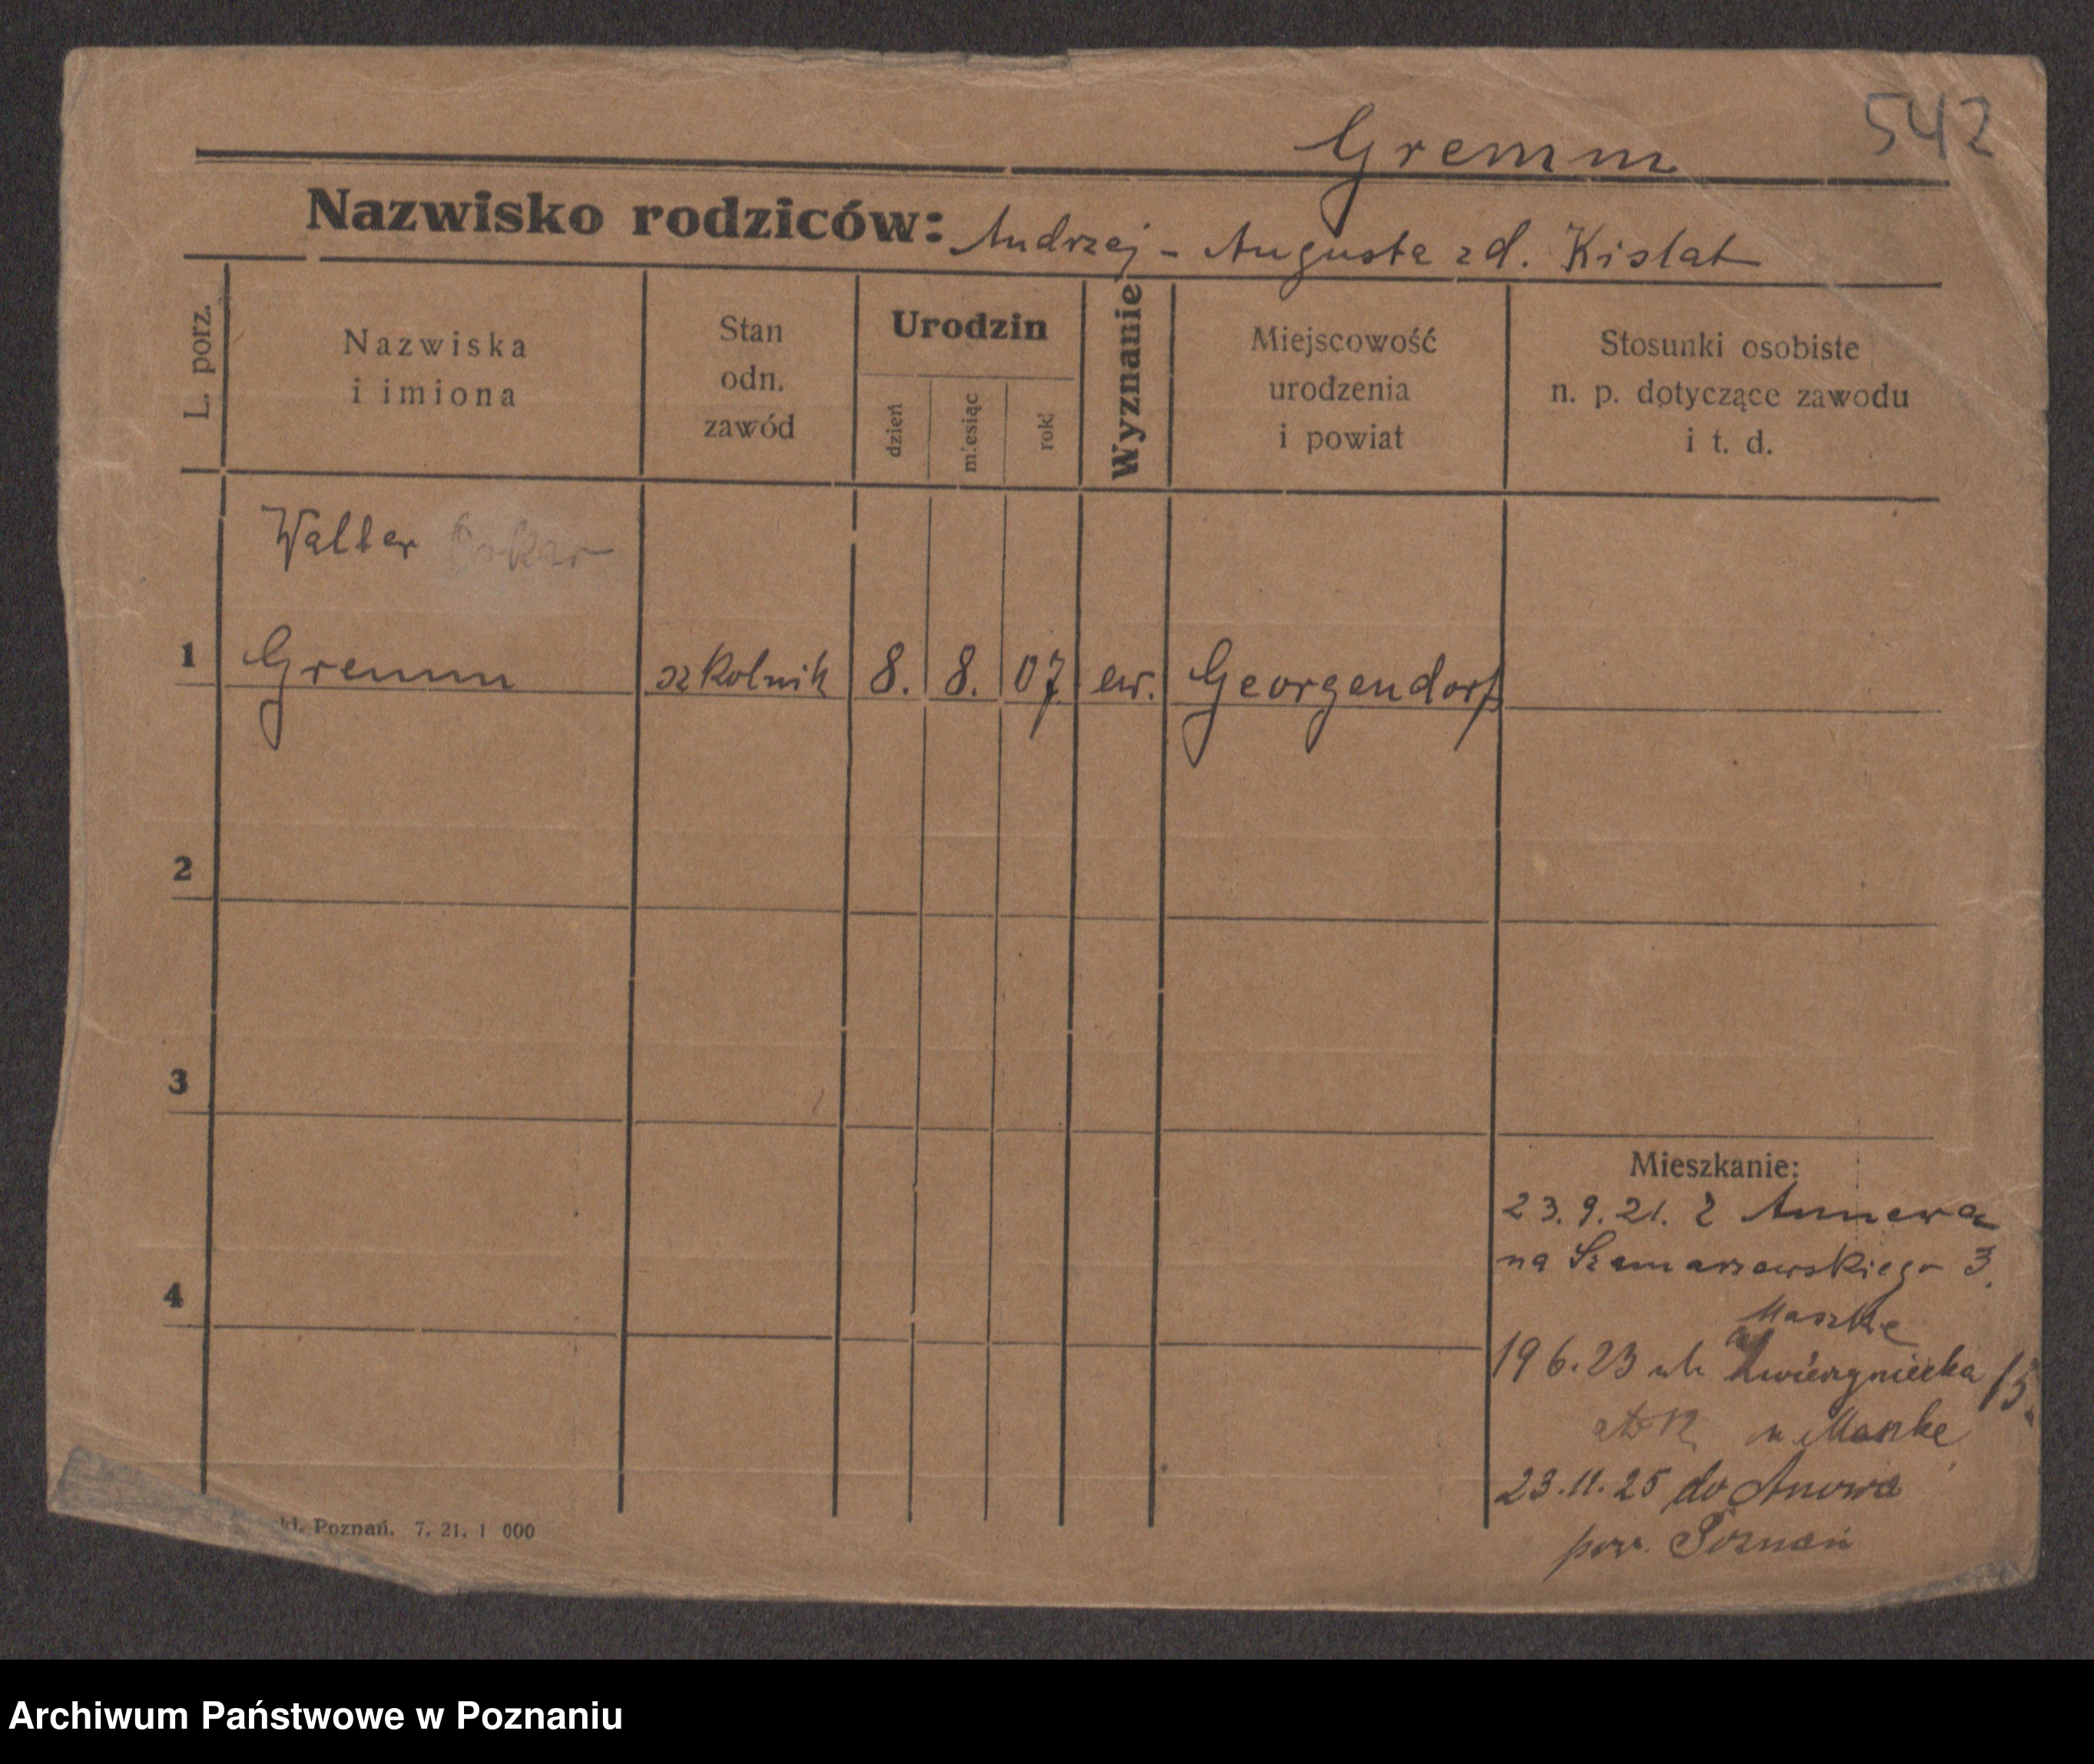 542
Gremm
Nazwisko rodziców: Andrzej - Augusta zd. Kislat
L. porz.
Nazwiska
i imiona
Stan
odn.
zawód
Urodzin
dzień
miesiąc
rok
Wyznanie
Miejscowość
urodzenia
i powiat
Stosunki osobiste
n. p. dotyczące zawodu
i t. d.
Walter
1 Gremm szkolnik 8. 8. 07 ew. Georgendorf
2
3
4
Mieszkanie:
23.9.21. z Annowa
na Szamarzewskiego 3.
Maszke
19 6.23 ul. Zwierzyniecka 15.
u Maske
23.11.25 do Anowa
pow. Poznań
Poznań. 7. 21. 1 000
Archiwum Państwowe w Poznaniu